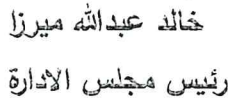 خالد عبدالله ميرزا
رئيس مجلس الادارة